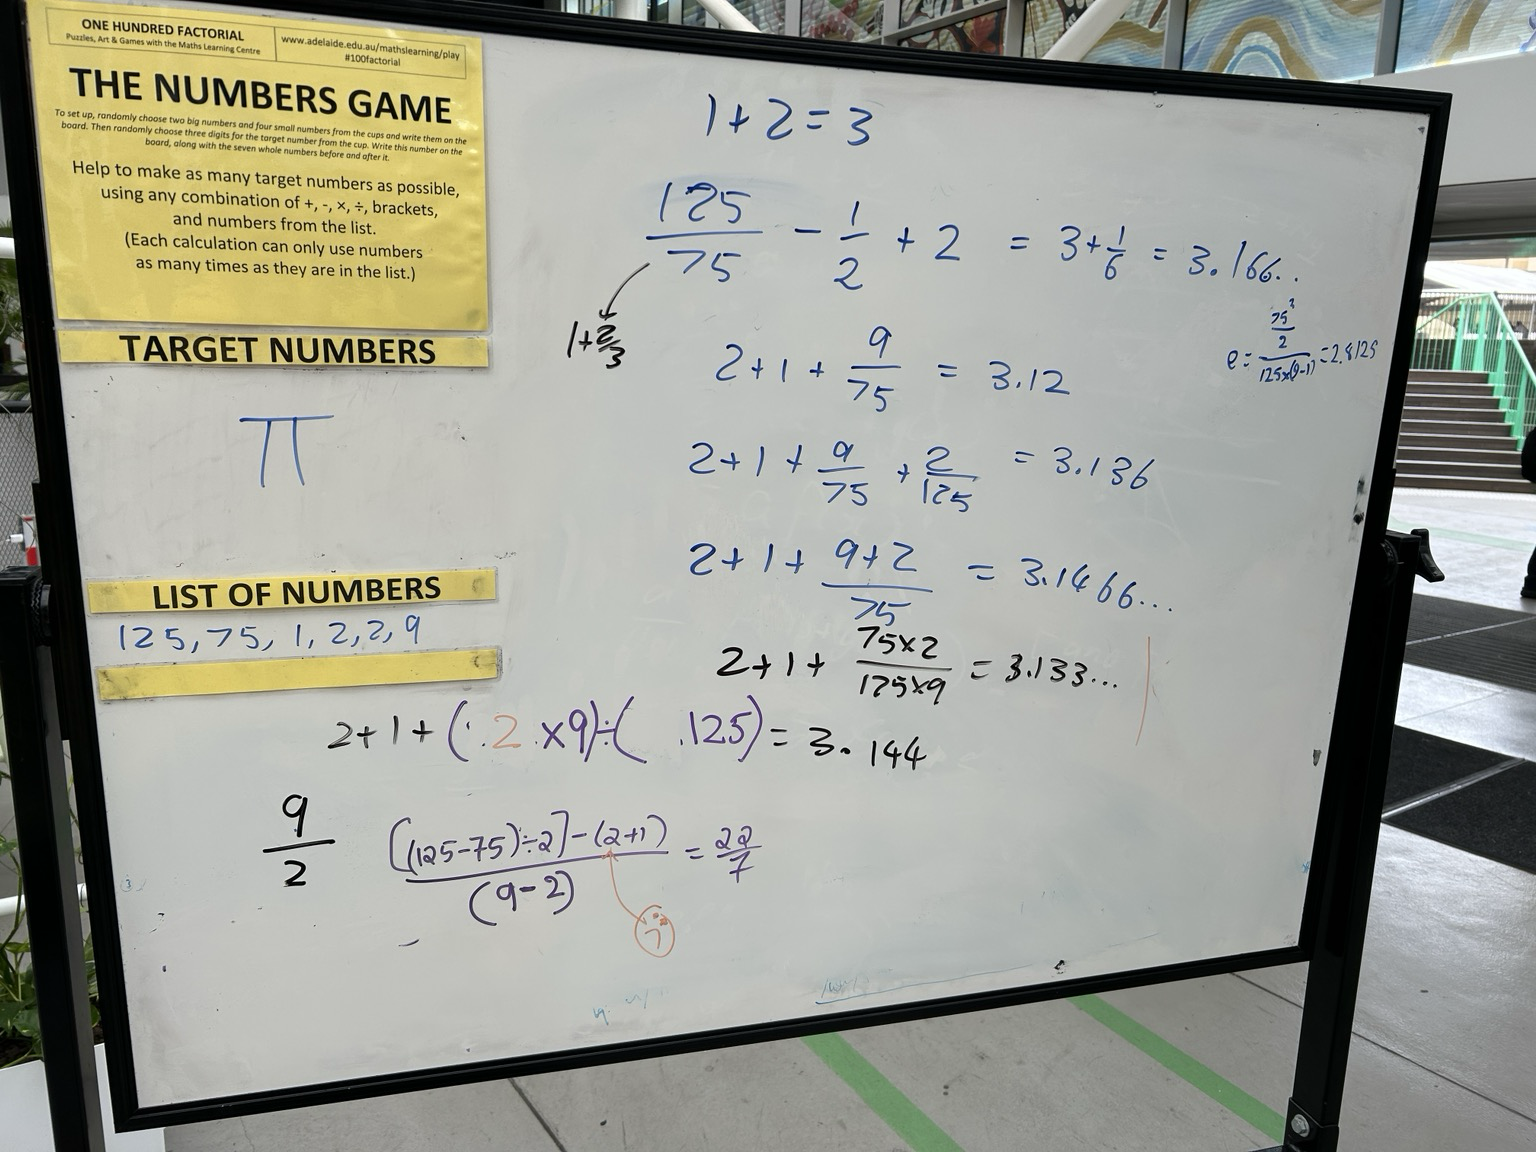 ONE HUNDRED FACTORIAL
Puzzles, Art & Games with the Maths Learning Centre
www.adelaide.edu.au/mathslearning/play
#100factorial
THE NUMBERS GAME
To set up, randomly choose two big numbers and four small numbers from the cups and write them on the
board. Then randomly choose three digits for the target number from the cup. Write this number on the
board, along with the seven whole numbers before and after it.
Help to make as many target numbers as possible,
using any combination of +, -, ×, ÷, brackets,
and numbers from the list.
(Each calculation can only use numbers
as many times as they are in the list.)
TARGET NUMBERS
π
LIST OF NUMBERS
125, 75, 1, 2, 2, 9
1+2=3
125/75 - 1/2 + 2 = 3+1/6 = 3.166..
1+2/3
e = (75²/2)/(125×(9-1)) = 2.8125
2+1+ 9/75 = 3.12
2+1+ 9/75 + 2/125 = 3.136
2+1+ (9+2)/75 = 3.1466...
2+1+ (75×2)/(125×9) = 3.133...
2+1+(2×9)÷(.125) = 3.144
9/2
[(125-75)÷2]-(2+1)/(9-2) = 22/7